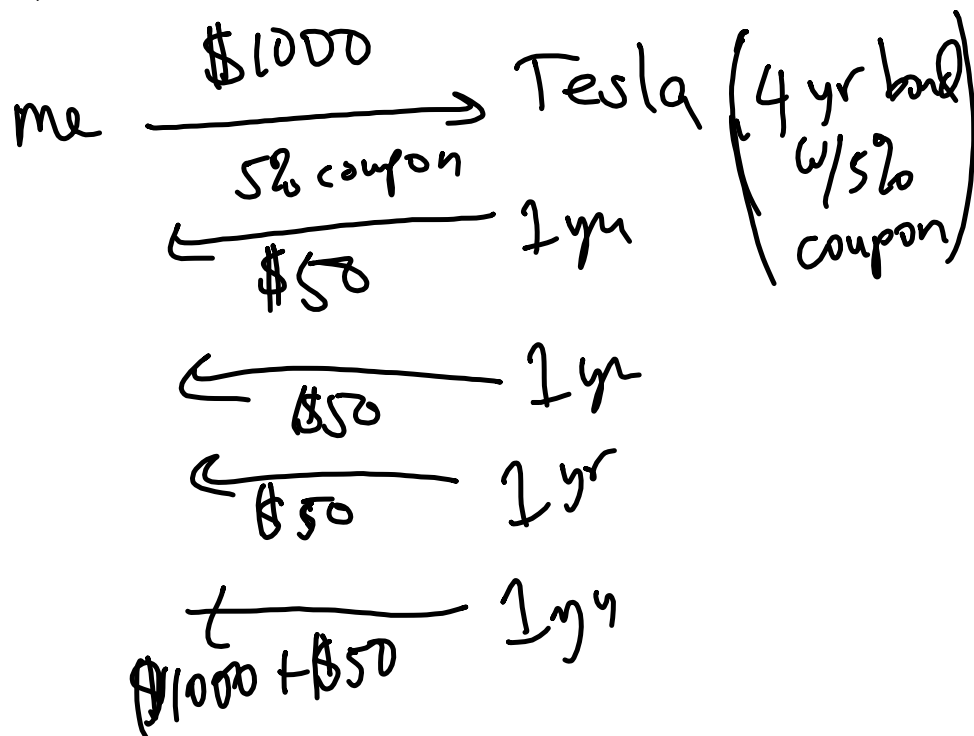 $1000
me Tesla (4 yr bond
w/5%
coupon)
5% coupon
1 yr
$50
1 yr
$50
1 yr
$50
1 yr
$1000 + $50